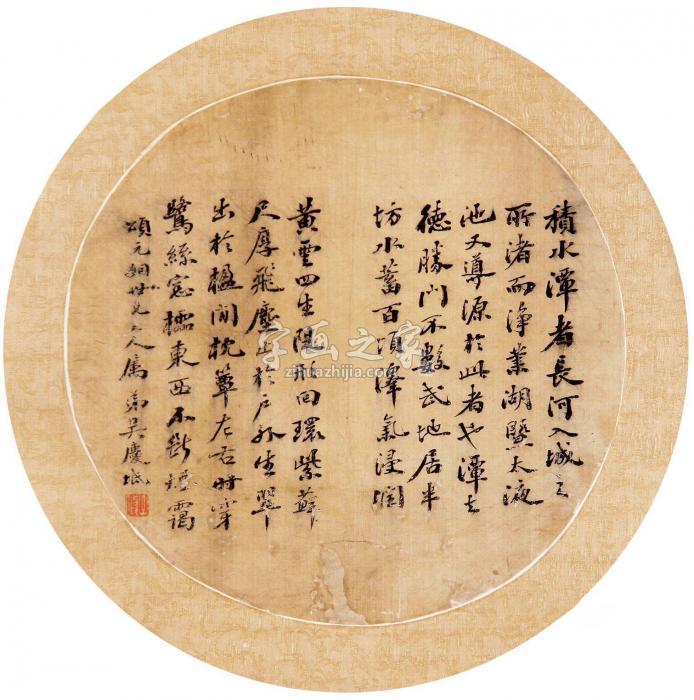 積水潭者長河入城之
所渚而淨業湖暨太液
池又導源於此者也潭去
德勝門不數武地居半
坊水蓄百頃澤氣浸潤
黃雲四生隄形回環紫蘚
尺厚飛塵止於戶外生翠
出於楹間枕簟左右時穿
鷺絲窓櫺東西不斷煙靄
頌元姻世兄大人属 弟吳慶坻
字画之家
zihuazhijia.com